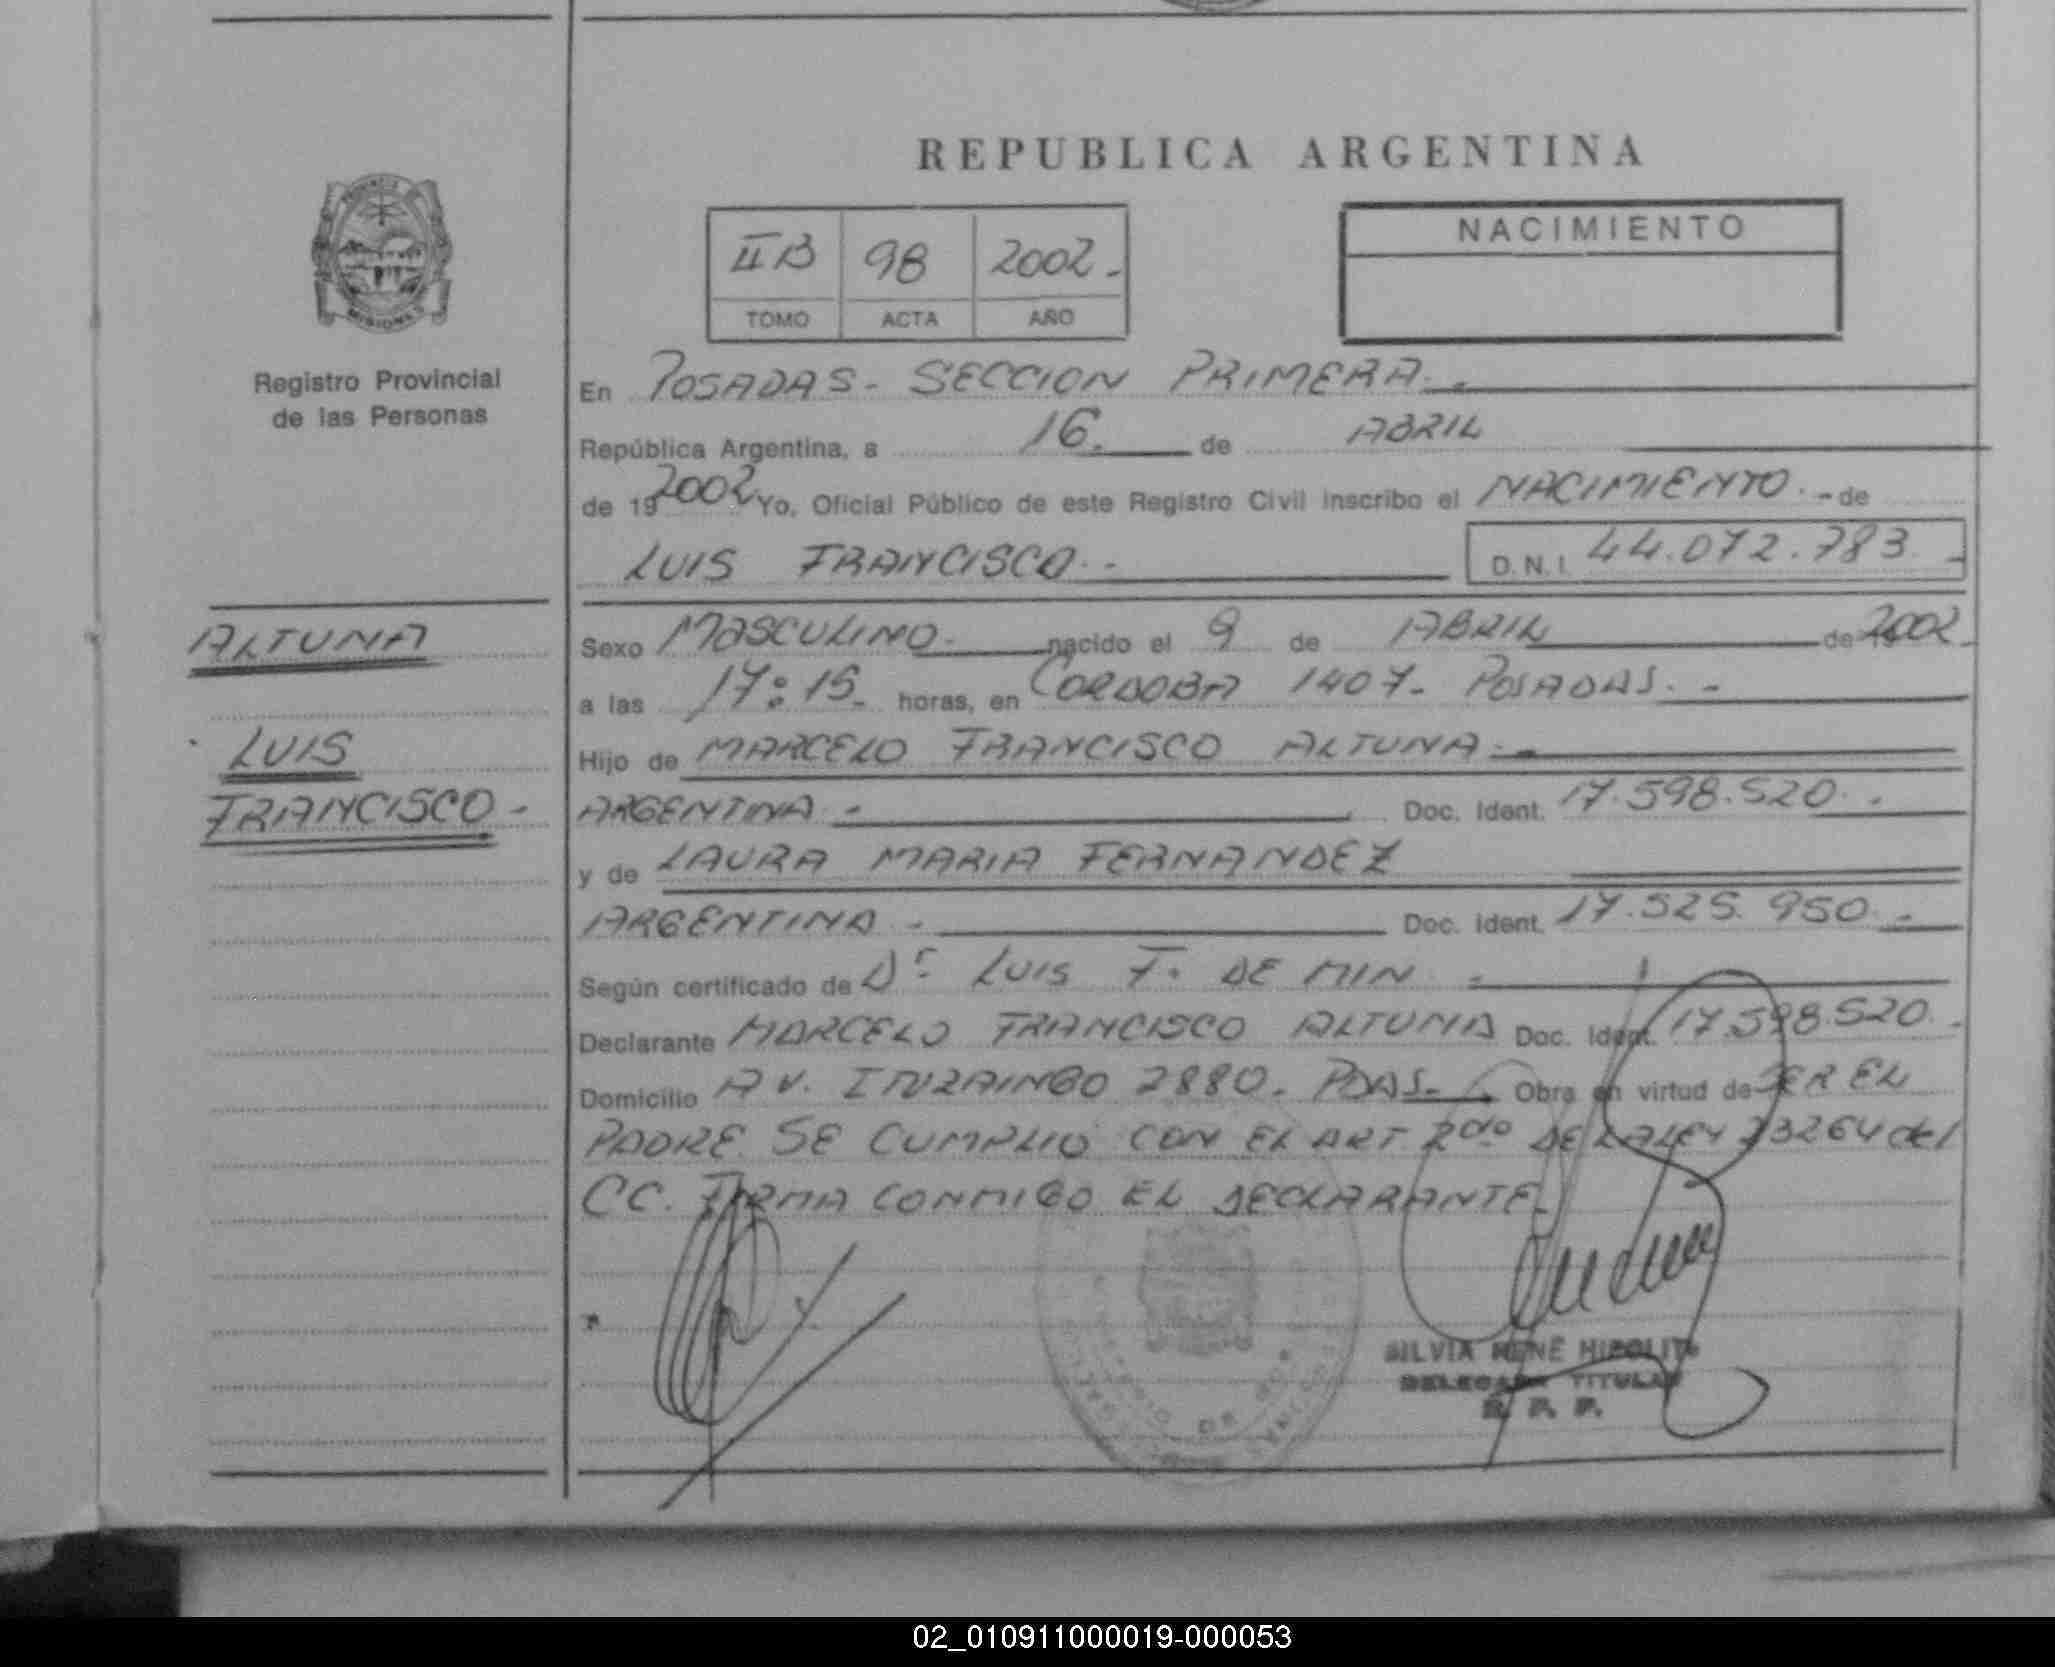 REPUBLICA ARGENTINA
II B 98 2002.-
TOMO ACTA AÑO
NACIMIENTO
MISIONES
Registro Provincial
de las Personas
En POSADAS- SECCION PRIMERA.-
República Argentina, a 16. de ABRIL
de 19 2002 Yo, Oficial Público de este Registro Civil inscribo el NACIMIENTO.- de
LUIS FRANCISCO.- D.N.I. 44.072.783.-
ALTUNA
LUIS
FRANCISCO-
Sexo MASCULINO. nacido el 9 de ABRIL de 2002.
a las 17:15. horas, en CORDOBA 1407- POSADAS.-
Hijo de MARCELO FRANCISCO ALTUNA.-
ARGENTINA.- Doc. Ident. 17.598.520.-
y de LAURA MARIA FERNANDEZ
ARGENTINA.- Doc. Ident. 17.525.950.-
Según certificado de Dr. LUIS F. DE MIN.-
Declarante MARCELO FRANCISCO ALTUNA Doc. Ident. 17.598.520.-
Domicilio AV. ITUZAINGO 2880. PDAS.- Obra en virtud de SER EL
PADRE. SE CUMPLIO CON EL ART. 2do DE LA LEY 23264 del
CC. FIRMA CONMIGO EL DECLARANTE.
SILVIA RENÉ HIPOLITO
DELEGADA TITULAR
R. P. P.
02_010911000019-000053